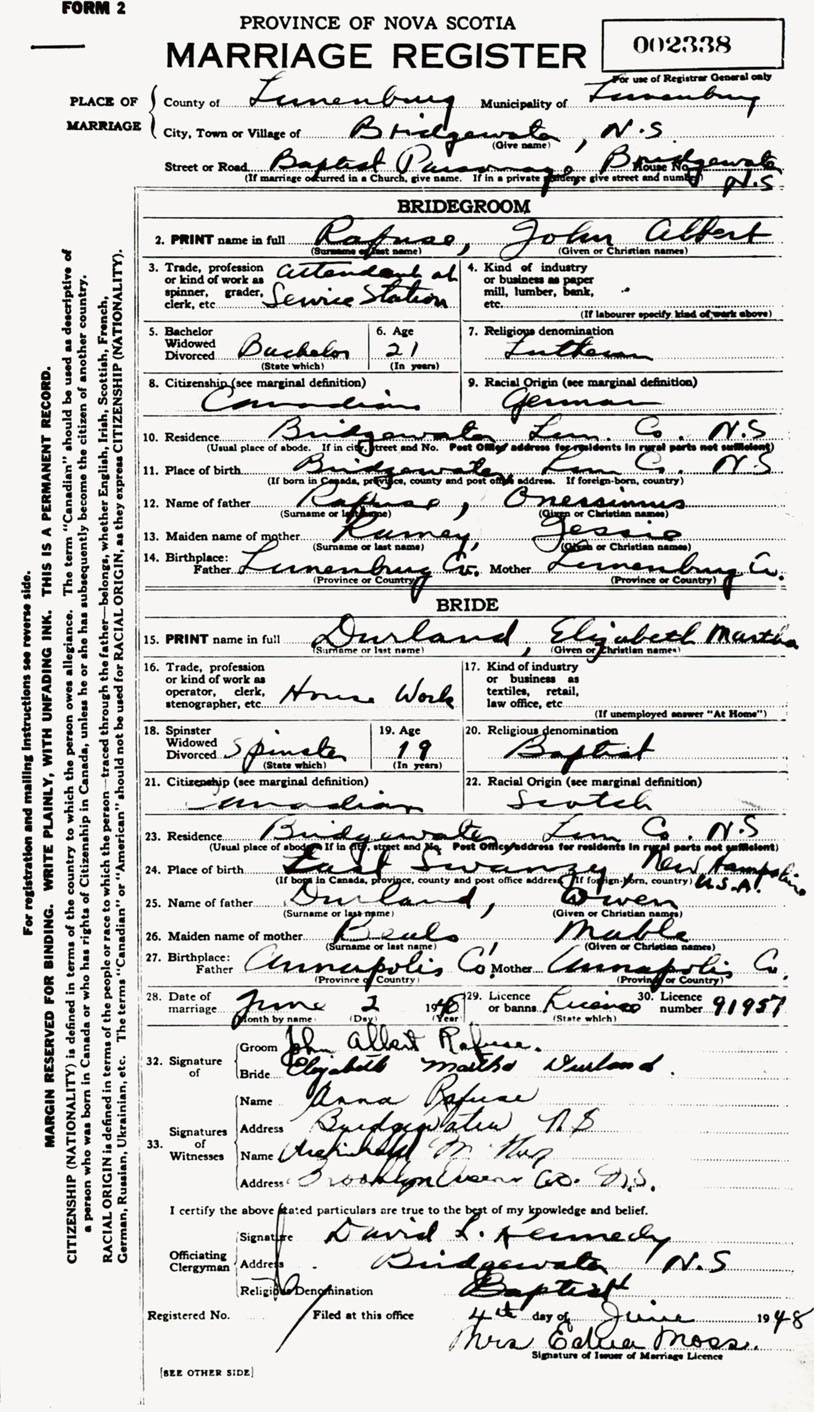 FORM 2
PROVINCE OF NOVA SCOTIA
MARRIAGE REGISTER
002338
For use of Registrar General only
PLACE OF MARRIAGE
County of Lunenburg Municipality of Lunenburg
City, Town or Village of Bridgewater, N.S
(Give name)
Street or Road Baptist Parsonage, Bridgewater House No. N.S
(If marriage occurred in a Church, give name. If in a private residence give street and number)
BRIDEGROOM
2. PRINT name in full Rafuse, John Albert
(Surname or last name) (Given or Christian names)
3. Trade, profession or kind of work as spinner, grader, clerk, etc. Attendant at Service Station
4. Kind of industry or business as paper mill, lumber, bank, etc.
(If labourer specify kind of work above)
5. Bachelor Widowed Divorced Bachelor
(State which)
6. Age 21
(In years)
7. Religious denomination Lutheran
8. Citizenship (see marginal definition) Canadian
9. Racial Origin (see marginal definition) German
10. Residence Bridgewater Lun. Co. N.S
(Usual place of abode. If in city, street and No. Post Office address for residents in rural parts not sufficient)
11. Place of birth Bridgewater Lun Co. N.S
(If born in Canada, province, county and post office address. If foreign-born, country)
12. Name of father Rafuse, Onessimus
(Surname or last name) (Given or Christian names)
13. Maiden name of mother Ramey, Jessie
(Surname or last name) (Given or Christian names)
14. Birthplace: Father Lunenburg Co. Mother Lunenburg Co.
(Province or Country) (Province or Country)
BRIDE
15. PRINT name in full Durland, Elizabeth Martha
(Surname or last name) (Given or Christian names)
16. Trade, profession or kind of work as operator, clerk, stenographer, etc. House Work
17. Kind of industry or business as textiles, retail, law office, etc
(If unemployed answer "At Home")
18. Spinster Widowed Divorced Spinster
(State which)
19. Age 19
(In years)
20. Religious denomination Baptist
21. Citizenship (see marginal definition) Canadian
22. Racial Origin (see marginal definition) Scotch
23. Residence Bridgewater Lun Co. N.S
(Usual place of abode If in city, street and No. Post Office address for residents in rural parts not sufficient)
24. Place of birth East Swanzey New Hampshire U.S.A.
(If born in Canada, province, county and post office address If foreign-born, country)
25. Name of father Durland, Owen
(Surname or last name) (Given or Christian names)
26. Maiden name of mother Beals, Mable
(Surname or last name) (Given or Christian names)
27. Birthplace: Father Annapolis Co Mother Annapolis Co.
(Province or Country) (Province or Country)
28. Date of marriage June 2 19
(Month by name) (Day) (Year)
29. Licence or banns License
(State which)
30. Licence number 91957
32. Signature of
Groom John Albert Rafuse.
Bride Elizabeth Martha Durland.
33. Signatures of Witnesses
Name Anna Rafuse
Address Bridgewater N S
Name Archibald M.
Address Brooklyn Queens Co. N.S.
I certify the above stated particulars are true to the best of my knowledge and belief.
Officiating Clergyman
Signature David L. Kennedy
Address Bridgewater N.S
Religious Denomination Baptist
Registered No. Filed at this office 4th day of June 1948
Mrs Edna Moss.
Signature of Issuer of Marriage Licence
[SEE OTHER SIDE]
For registration and mailing instructions see reverse side.
MARGIN RESERVED FOR BINDING. WRITE PLAINLY, WITH UNFADING INK. THIS IS A PERMANENT RECORD.
CITIZENSHIP (NATIONALITY) is defined in terms of the country to which the person owes allegiance. The term "Canadian" should be used as descriptive of
a person who was born in Canada or who has rights of Citizenship in Canada, unless he or she has subsequently become the citizen of another country.
RACIAL ORIGIN is defined in terms of the people or race to which the person—traced through the father—belongs, whether English, Irish, Scottish, French,
German, Russian, Ukrainian, etc. The terms "Canadian" or "American" should not be used for RACIAL ORIGIN, as they express CITIZENSHIP (NATIONALITY).